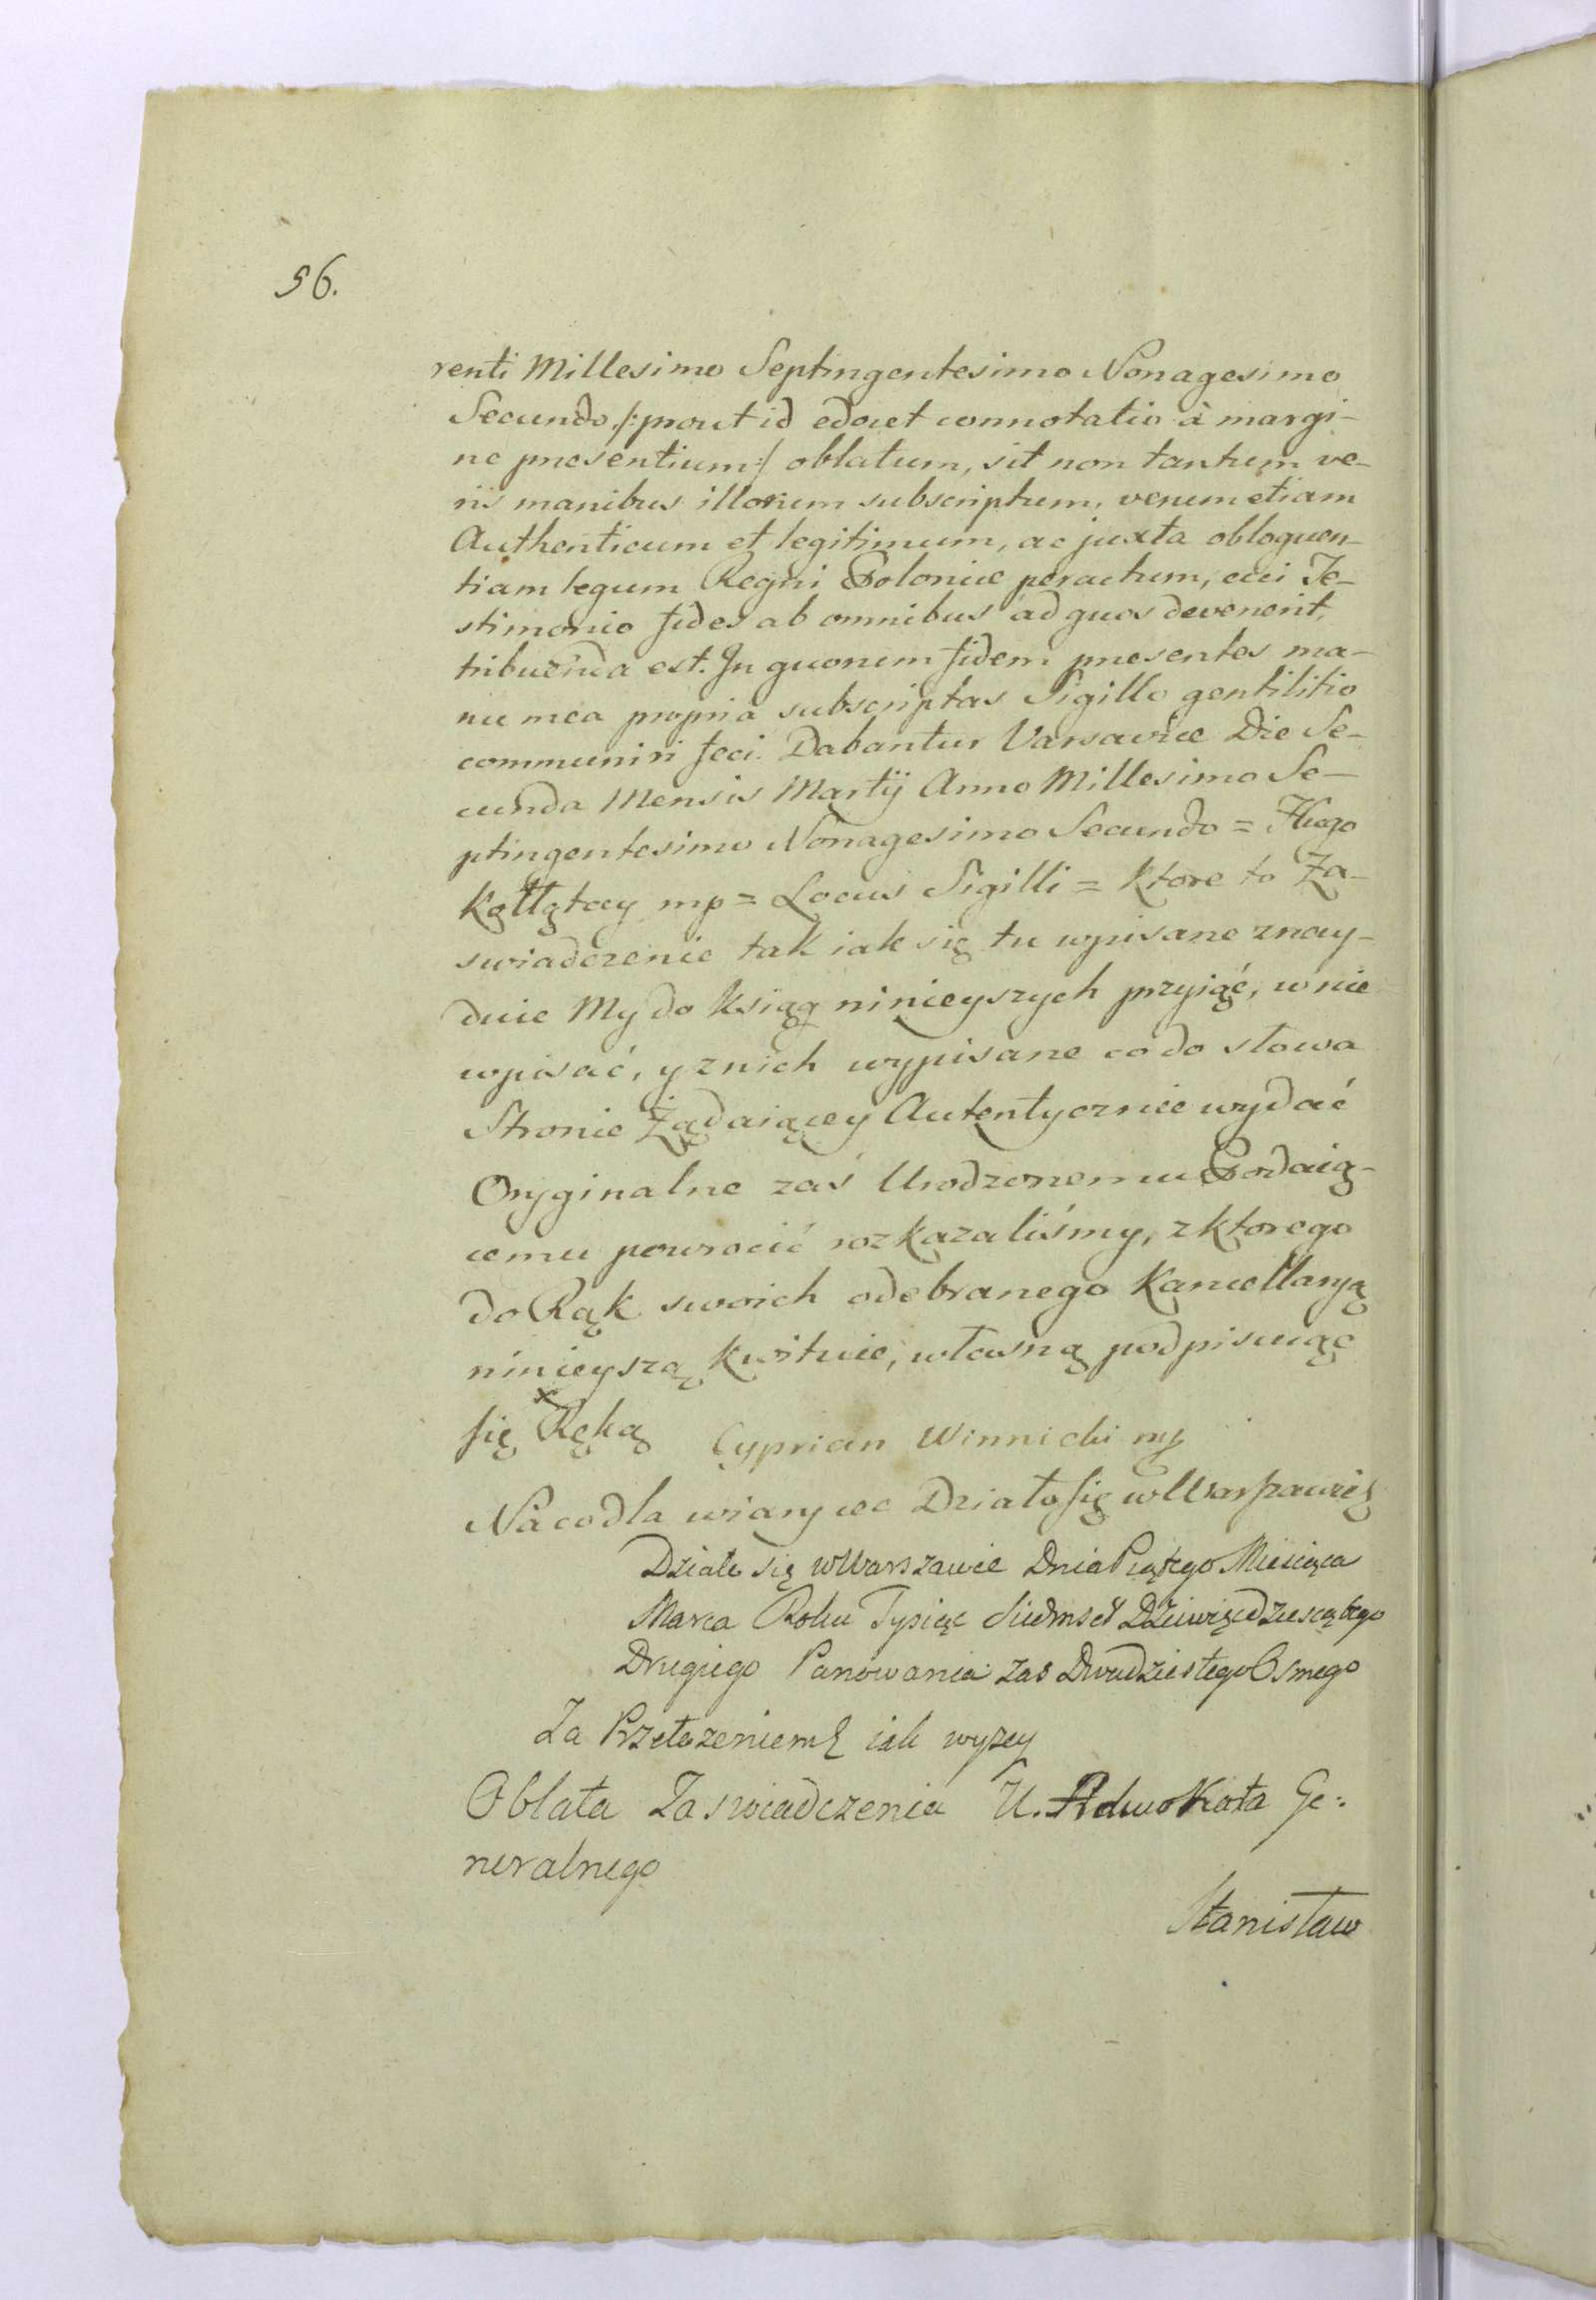 56.
renti Millesimo Septingentesimo Nonagesimo
Secundo /: prout id edocet connotatio à margi-
ne presentium :/ oblatum, sit non tantum ve-
ris manibus illorum subscriptum, verum etiam
Authenticum et legitimum, ac juxta obloquen-
tiam legum Regni Poloniæ peractum, cui Te-
stimonio fides ab omnibus ad quos devenerit,
tribuenda est. In quorum fidem presentes ma-
nu mea propria subscriptas Sigillo gentilitio
communiri feci. Dabantur Varsaviæ Die Se-
cunda Mensis Martij Anno Millesimo Se-
ptingentesimo Nonagesimo Secundo = Hugo
Kołłątay mp = Locus Sigilli = Ktore to Za-
swiadczenie tak iak się tu wpisane znay-
duie My do Ksiąg ninieyszych przyiąć, w nie
wpisać, y z nich wypisane co do słowa
Stronie Żądaiącey Autentycznie wydać
Oryginalne zaś Urodzonemu Podaią-
cemu powrocić rozkazaliśmy, z ktorego
do Rąk swoich odebranego Kancellaryą
ninieyszą kwituie, własną podpisuiąc
się Ręką Cyprian Winnicki mp
Na co dla wiary etc Działo się w Warszawie
Działo się w Warszawie Dnia Piątego Miesiąca
Marca Roku Tysiąc Siedmset Dziewięcdziesiątego
Drugiego Panowania zas Dwudziestego Osmego
Za Przełożeniem iak wyzey
Oblata Zaswiadczenia U. Adwokata Ge:
neralnego
Stanisław